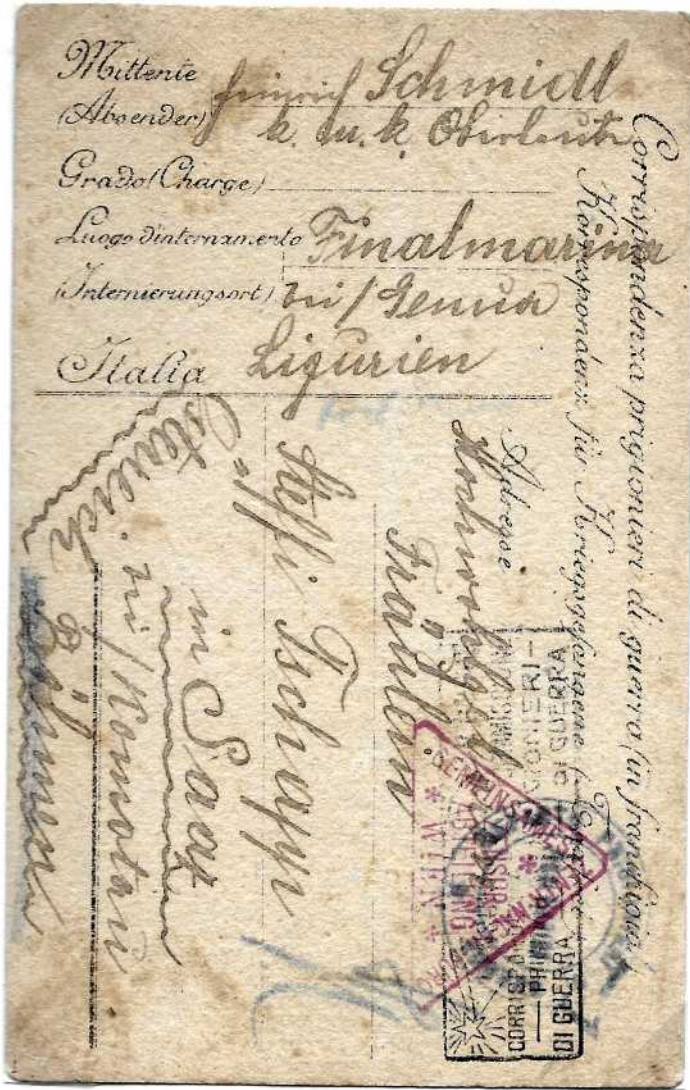 Mittente
(Absender) Heinrich Schmidl
k. u. k. Oberleutn
Grado (Charge)
Luogo d'internamento Finalmarina
(Internierungsort) bei / Genua
Italia Ligurien
Corrispondenza prigionieri di guerra (in franchigia)
Korrespondenz für Kriegsgefangene
Adresse
Hochwohlgeb
Fräulein
Steffi Tschapp
in Saaz
bei / Komotau
Österreich
Böhmen
CORRISPON
PRIGIONIERI-
DI GUERRA
DI GUERRA
GEMEINSAMES
* WIEN *